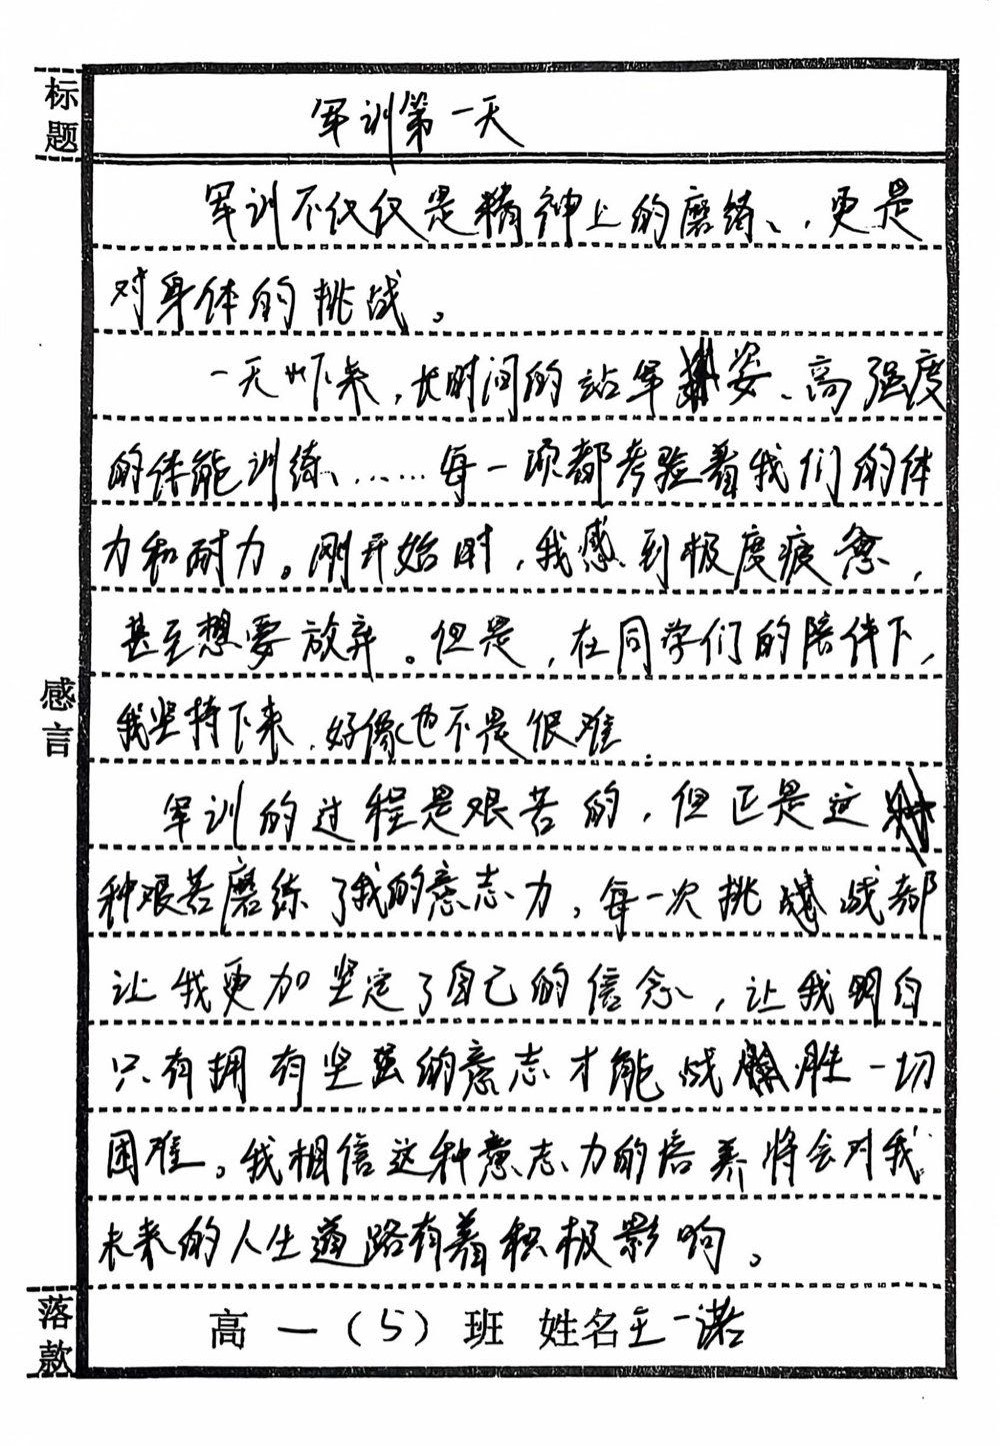 标题
军训第一天
军训不仅仅是精神上的磨练、，更是
对身体的挑战。
一天下来，长时间的站军姿、高强度
的体能训练、……每一项都考验着我们的体
力和耐力。刚开始时，我感到极度疲惫，
甚至想要放弃。但是，在同学们的陪伴下，
感言
我坚持下来，好像也不是很难.
军训的过程是艰苦的，但正是这
种艰苦磨练了我的意志力，每一次挑战都
让我更加坚定了自己的信念，让我明白
只有拥有坚强的意志才能战胜一切
困难。我相信这种意志力的培养将会对我
未来的人生道路有着积极影响。
落款
高一（5）班 姓名王一诺